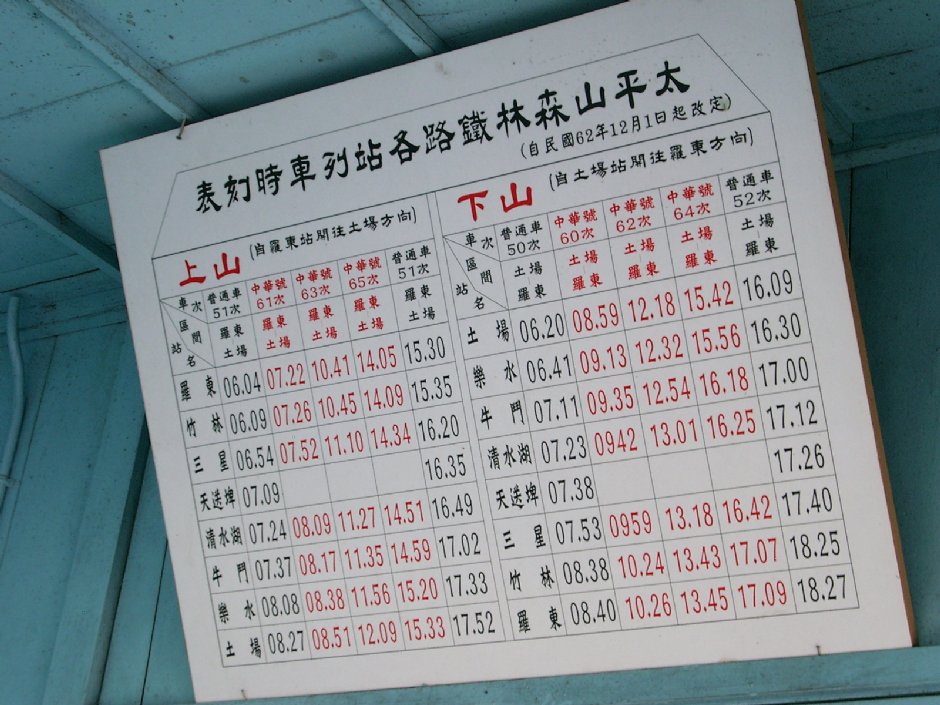 表刻時車列站各路鐵林森山平太
(自民國62年12月1日起改定)
上山 (自羅東站開往土場方向)
車次 普通車51次 中華號61次 中華號63次 中華號65次 普通車51次
區間 羅東土場 羅東土場 羅東土場 羅東土場 羅東土場
站名
羅東 06.04 07.22 10.41 14.05 15.30
竹林 06.09 07.26 10.45 14.09 15.35
三星 06.54 07.52 11.10 14.34 16.20
天送埤 07.09 16.35
清水湖 07.24 08.09 11.27 14.51 16.49
牛門 07.37 08.17 11.35 14.59 17.02
樂水 08.08 08.38 11.56 15.20 17.33
土場 08.27 08.51 12.09 15.33 17.52
下山 (自土場站開往羅東方向)
車次 普通車50次 中華號60次 中華號62次 中華號64次 普通車52次
區間 土場羅東 土場羅東 土場羅東 土場羅東 土場羅東
站名
土場 06.20 08.59 12.18 15.42 16.09
樂水 06.41 09.13 12.32 15.56 16.30
牛門 07.11 09.35 12.54 16.18 17.00
清水湖 07.23 0942 13.01 16.25 17.12
天送埤 07.38 17.26
三星 07.53 0959 13.18 16.42 17.40
竹林 08.38 10.24 13.43 17.07 18.25
羅東 08.40 10.26 13.45 17.09 18.27